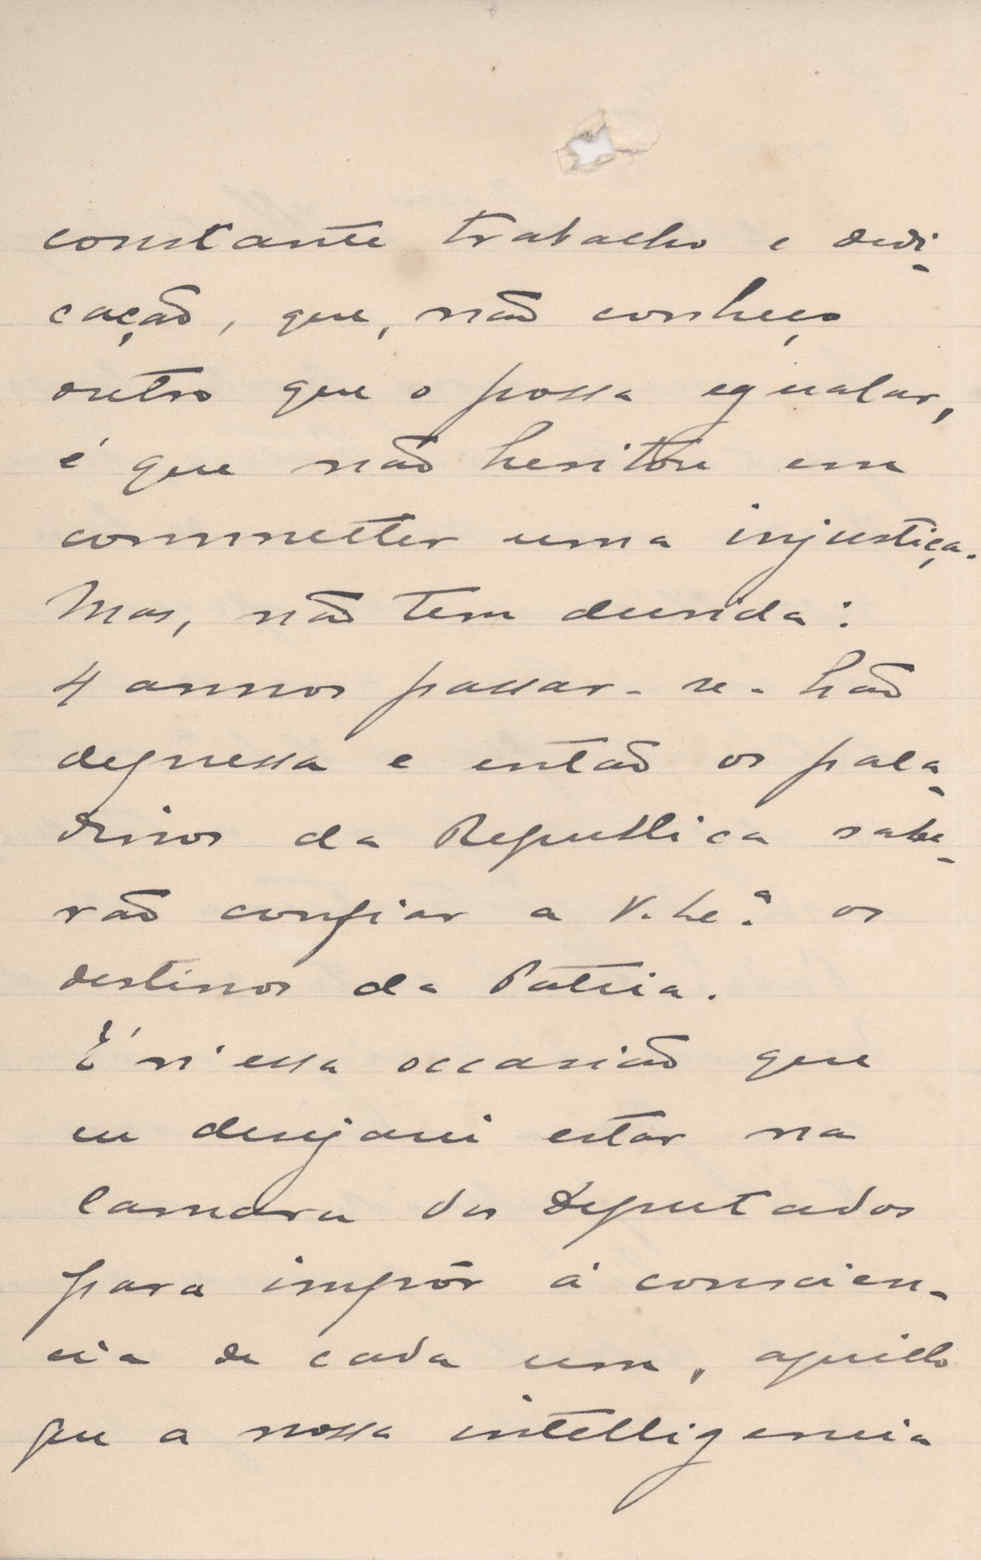 constante trabalho e dedi-
cação, que, não conheço
outro que o possa egualar,
é que não hesitou em
commetter uma injustiça.
Mas, não tem duvida:
4 annos passar-se-hão
depressa e então os pala-
dinos da Republica sabe-
rão confiar a V. Exª os
destinos da Patria.
É n'essa occasião que
eu desejarei estar na
Camara dos Deputados
para impôr á conscien-
cia de cada um, aquillo
que a nossa intelligencia